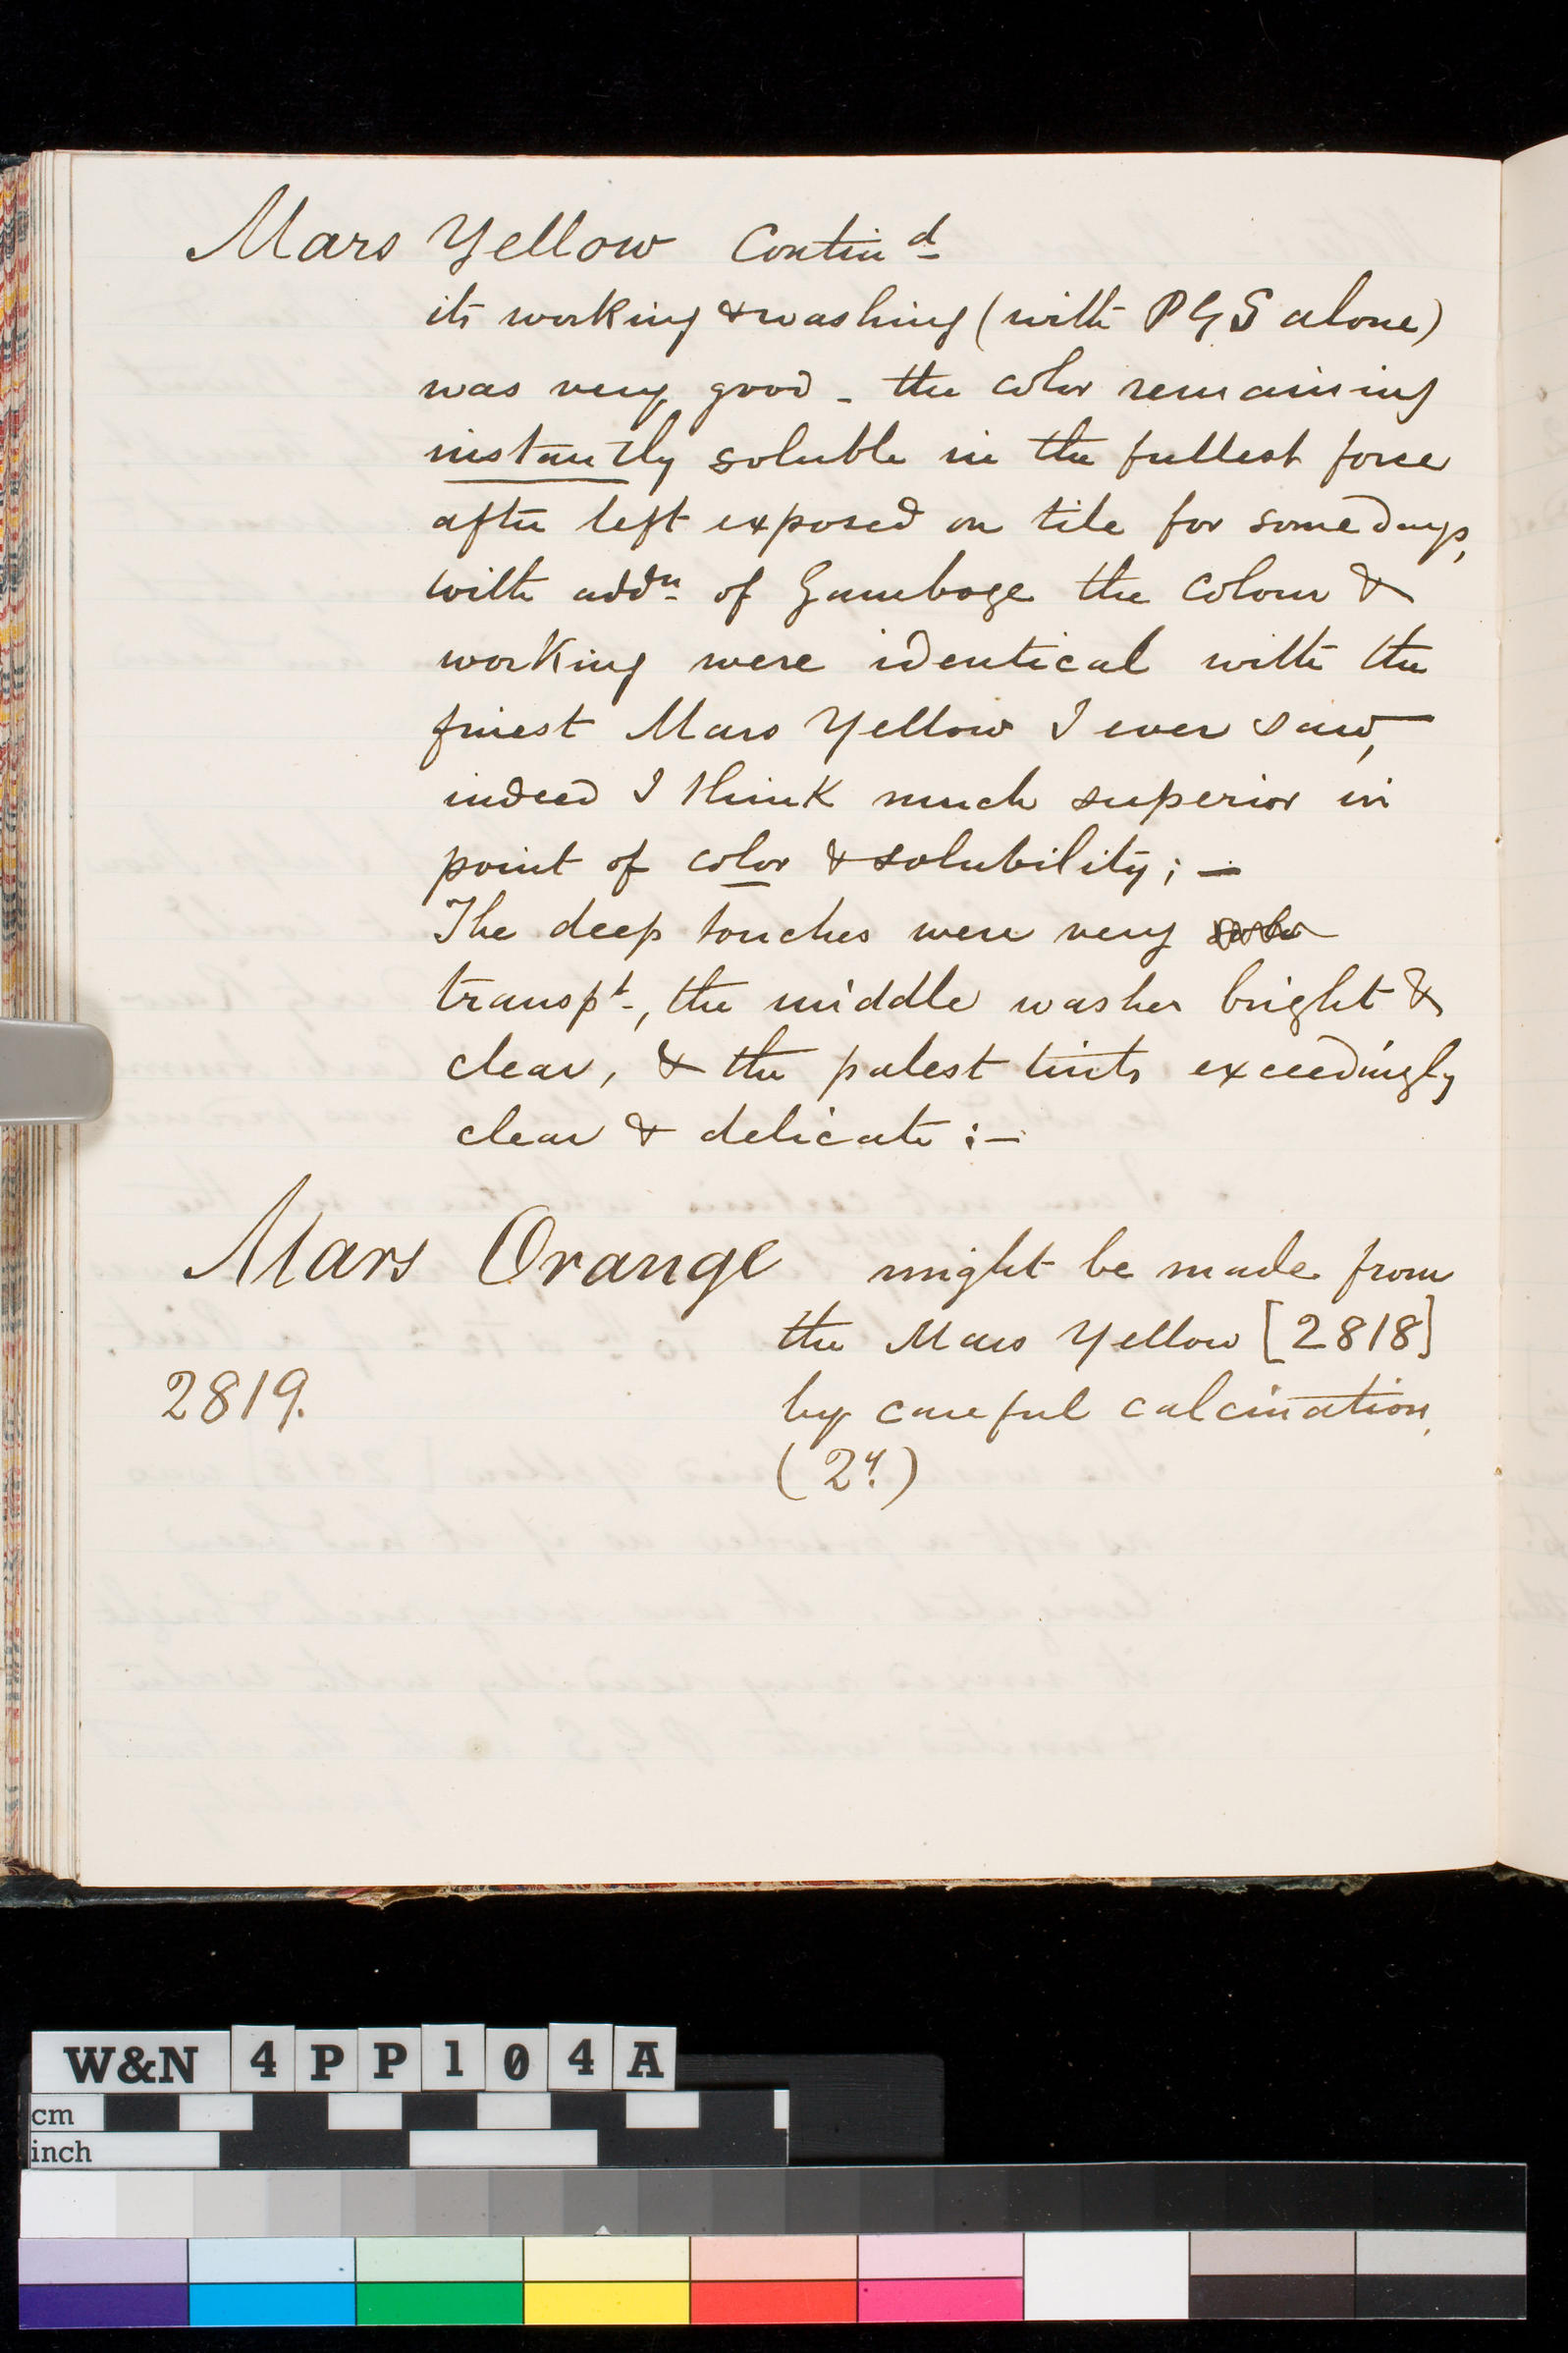 Mars Yellow Contind
its working & washing (with P G S alone)
was very good - the color remaining
instantly soluble in the fullest force
after left exposed on tile for some days,
with addn of Gamboge the colour &
working were identical with the
finest Mars Yellow I ever saw,
indeed I think much superior in
point of color & solubility; —
The deep touches were very
transpt, the middle washes bright &
clear, & the palest tints exceedingly
clear & delicate :—
Mars Orange might be made from
the Mars Yellow [2818]
2819.
by careful calcination,
(2y.)
W&N 4PP104A
cm
inch